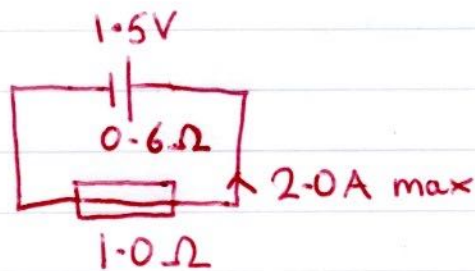 1.5V
0.6Ω
2.0A max
1.0Ω